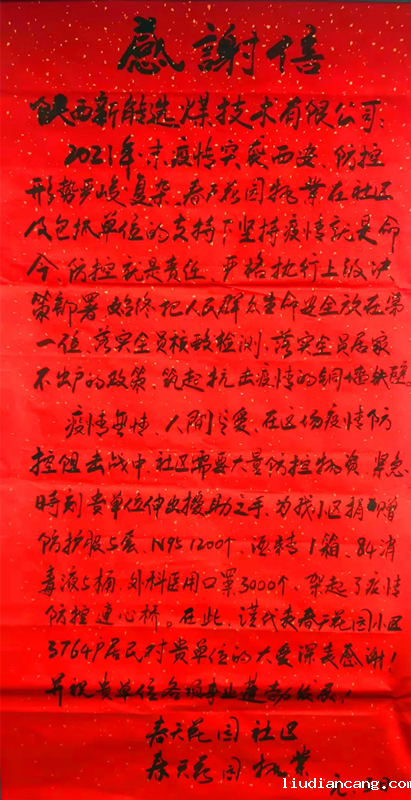 感謝信
陕西新能选煤技术有限公司：
2021年末疫情突袭西安、防控
形势严峻复杂、春天花园物业在社区
及包抓单位的支持下坚持疫情就是命
令、防控就是责任、严格执行上级决
策部署 始终把人民群众生命安全放在第
一位、落实全员核酸检测、落实全员居家
不出户的政策、筑起抗击疫情的铜墙铁壁
疫情无情、人间有爱、在这场疫情防
控阻击战中 社区需要大量防控物资 紧急
时刻贵单位伸出援助之手、为我小区捐赠
防护服5套、N95 1200个、酒精1箱、84消
毒液5桶、外科医用口罩3000个、架起了疫情
防控连心桥。在此、谨代表春天花园小区
3764户居民对贵单位的大爱深表感谢！
并祝贵单位各项事业蓬勃发展！
春天花园社区
春天花园物业
liudiancang.com